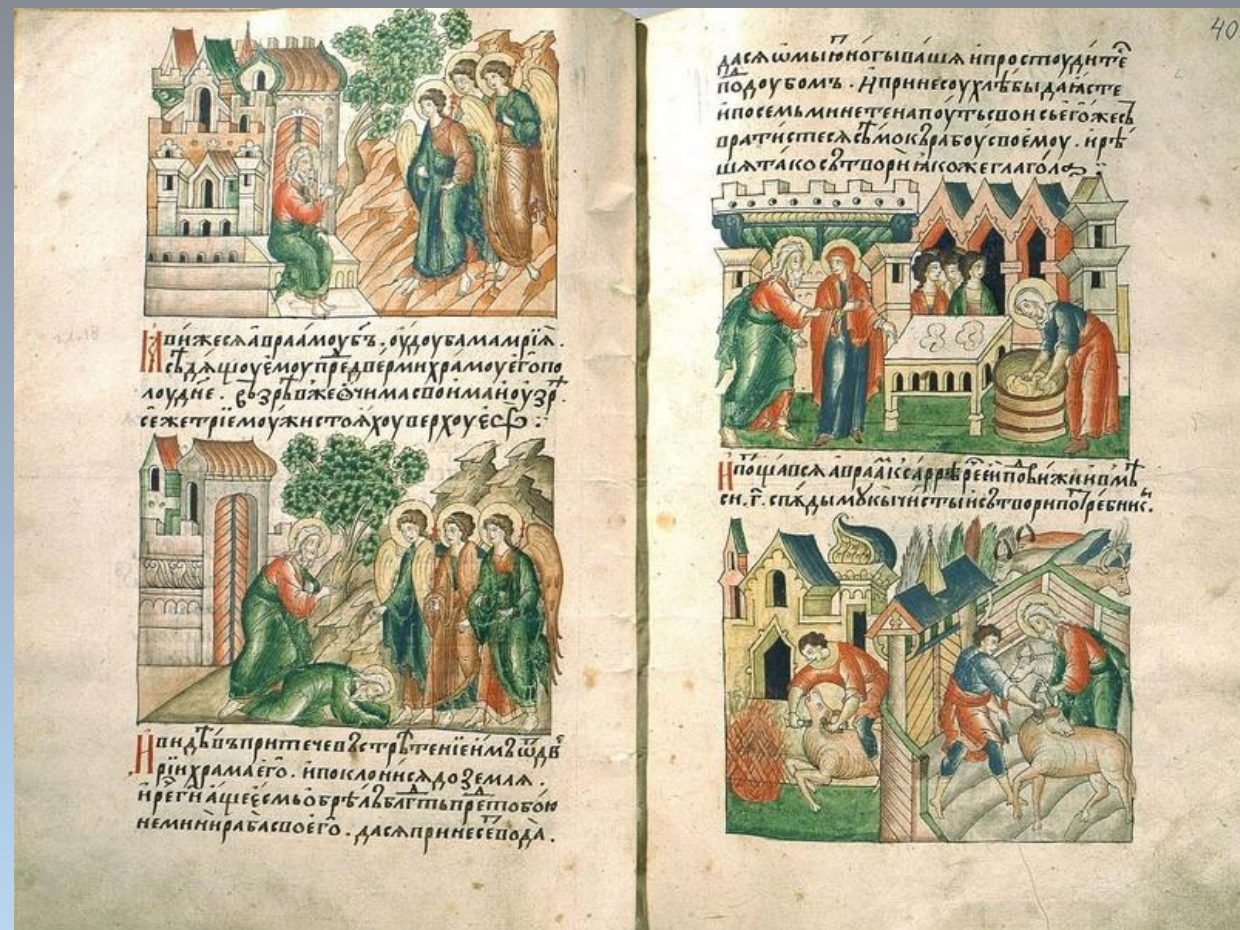 Ꙗвижесѧ авраамоу бъ҃. оу доуба мамрїѧ.
сѣдѧщоу ѐмоу прⷣе двермихрамоуѐго по
лоудне. възрѣвжеѻчимасвоимаи оузрⷺ.
сежетрїемоужистоѧхоуверхоуѐгѡ:
Ивидѣвъпритечевъстрѣтенїеимъѿдвⷺ
рїихрамаѐго. ипоклонисѧдоземлѧ.
ирѐ и ащеѐсмьобрѣлъблⷣгтьпрⷣетобою
неминирабасвоего. дасѧпринесеⷮвода.
40
дасѧѡмыюⷮногывашѧипростоудитѐ
поⷣдоубомъ. Ипринесоухлѣбыдаꙗсте
ипосемьминетенапоутьсвоисьегожесъ
вратистесѧсѣмокърабоусвоемоу. ирѣ
шѧтакосътвориꙗкожеглагол
Ипощавсѧавра ксаррѣрѐеипоⷣвижнивмⷺ
си. г҃. спѫдымукычистыисътворипотребник.